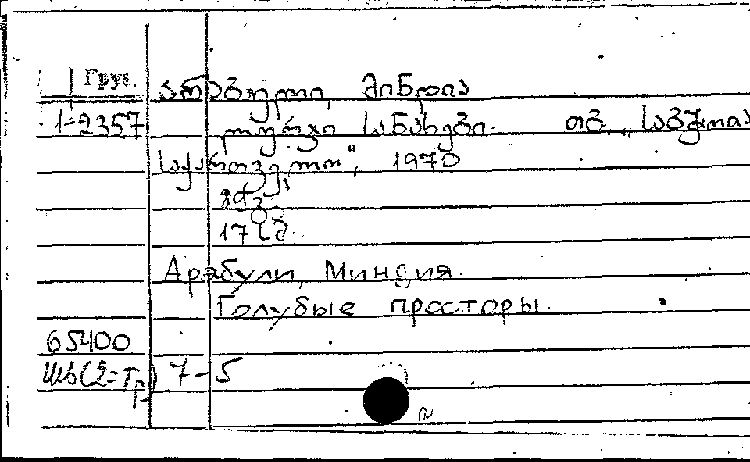 Груз. არაბული, მინდია
1-2357 ლურჯი სანახები. თბ. „საბჭოთა
საქართველო", 1970
17 სმ.
Арабули, Миндия.
Голубые просторы.
65400
7-5